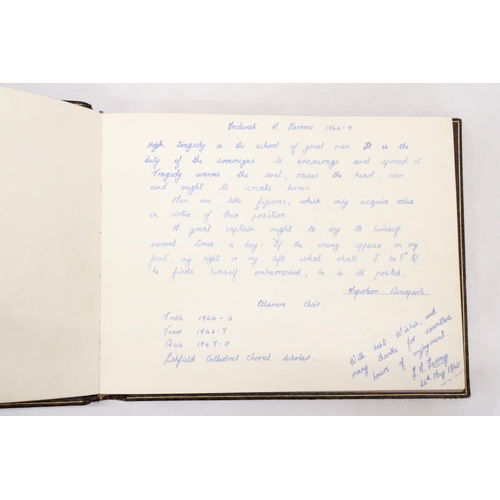 Frederick H. 1944-9
High tragedy is the school of great men. It is the
duty of the sovereigns to encourage and spread it
Tragedy warms the soul, raises the heart, can
and ought to create heroes
Men are like figures, which only acquire value
in virtue of their position.
A great captain ought to say to himself
several times a day: "If the enemy appears on my
front, my right or my left what shall I do?" If
he finds himself embarrassed, he is ill posted.
Napoleon Bonaparte
Ellesmere Choir.
Treble 1944-6
Tenor 1946-7
Bass 1947-8
Lichfield Cathedral Choral Scholar.
With best Wishes, and
many thanks for countless
hours of enjoyment.
26th May